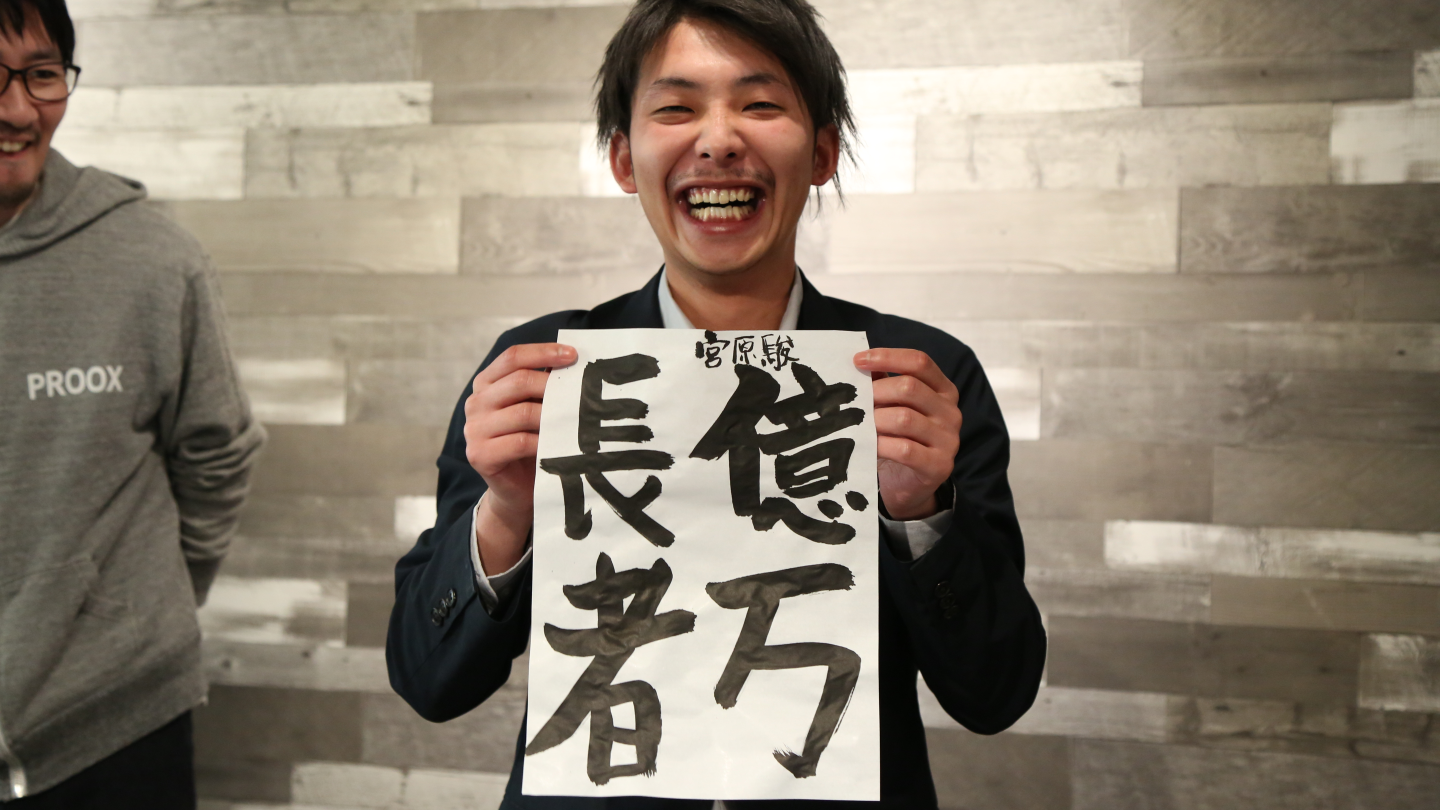 PROOX
宮原駿
億万
長者